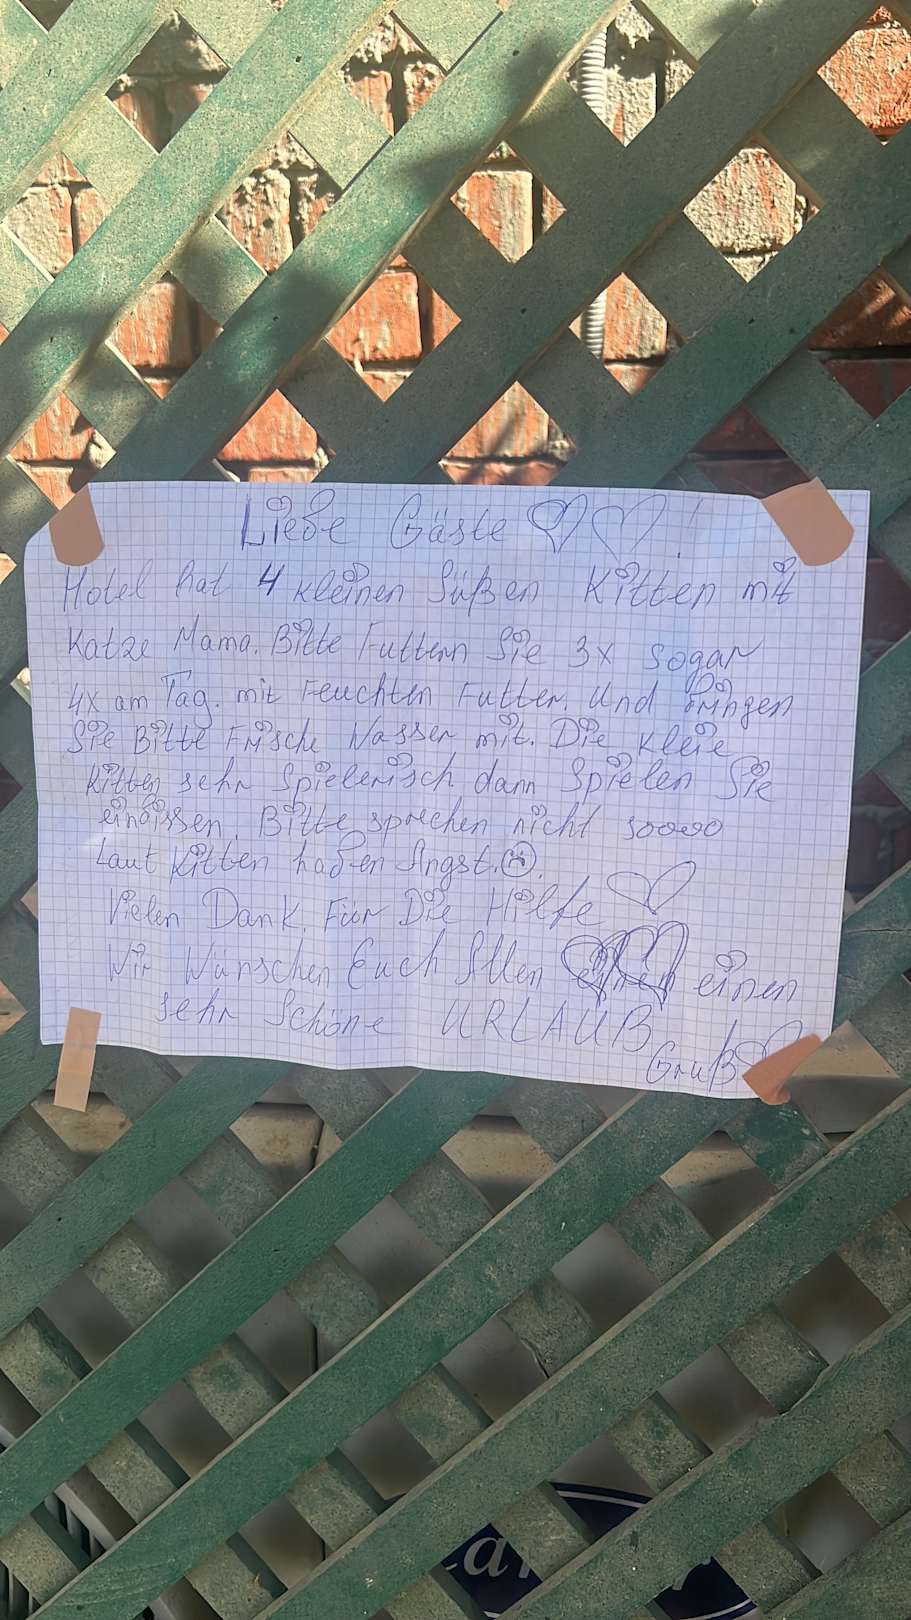 Liebe Gäste !
Hotel hat 4 kleinen Süßen Kitten mit
Katze Mama. Bitte Futtern Sie 3x sogar
4x am Tag. mit Feuchten Futter. Und bringen
Sie Bitte Frische Wasser mit. Die kleie
Kitten sehr Spielerisch dann Spielen Sie
einbissen. Bitte sprechen nicht soooo
Laut Kitten haben Angst.
Vielen Dank Für Die Hilfe
Wir Wünschen Euch Allen einen
sehr Schöne URLAUB
Gruß